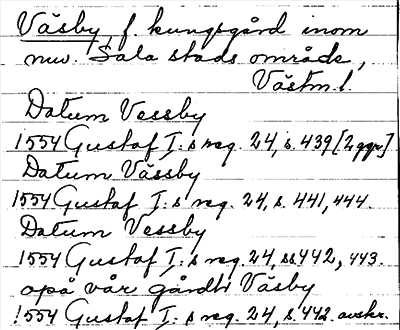 Väsby, f. kungsgård inom
nuv. Sala stads område,
Västm. l.
Datum Vessby
1554 Gustaf I:s reg. 24, s. 439 [2 ggr]
Datum Vässby
1554 Gustaf I:s reg. 24, s. 441, 444.
Datum Vessby
1554 Gustaf I:s reg. 24, ss 442, 443.
opå vår gårdh Väsby
1554 Gustaf I:s reg. 24, s. 442. avskr.